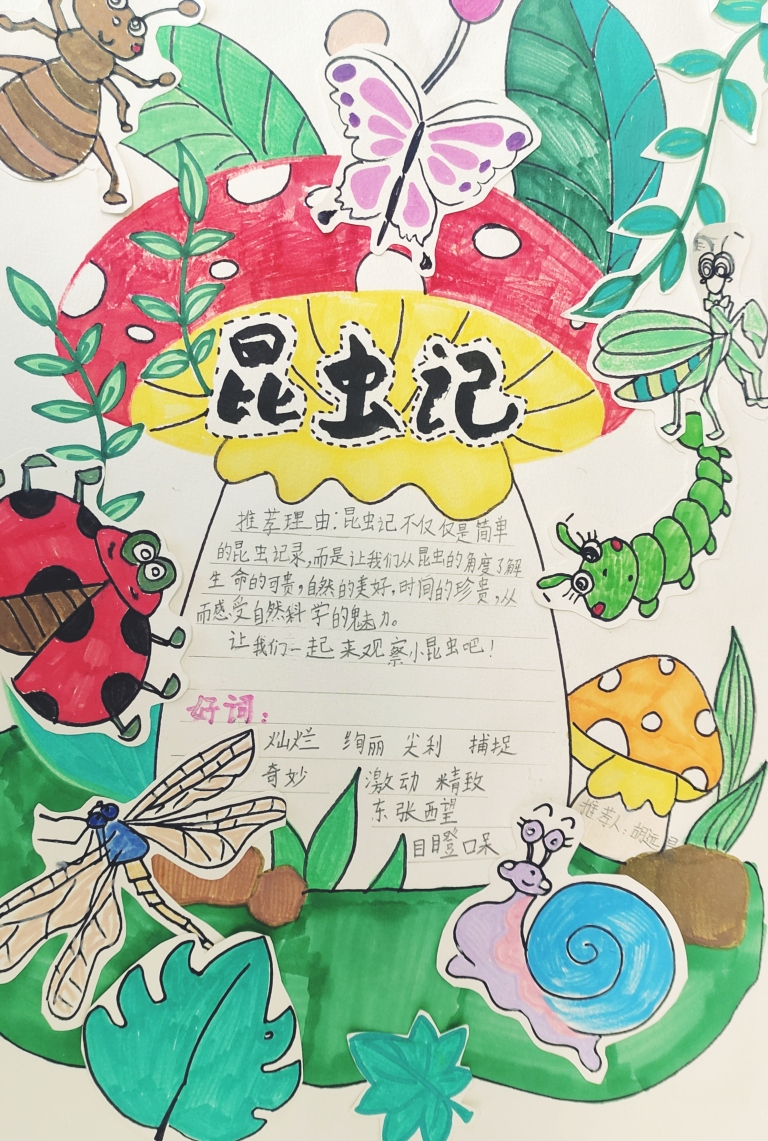 昆虫记
推荐理由:昆虫记不仅仅是简单
的昆虫记录,而是让我们从昆虫的角度了解
生命的可贵,自然的美好,时间的珍贵,从
而感受自然科学的魅力。
让我们一起来观察小昆虫吧!
好词:
灿烂 绚丽 尖利 捕捉
奇妙 激动 精致
东张西望
目瞪口呆
推荐人:胡远